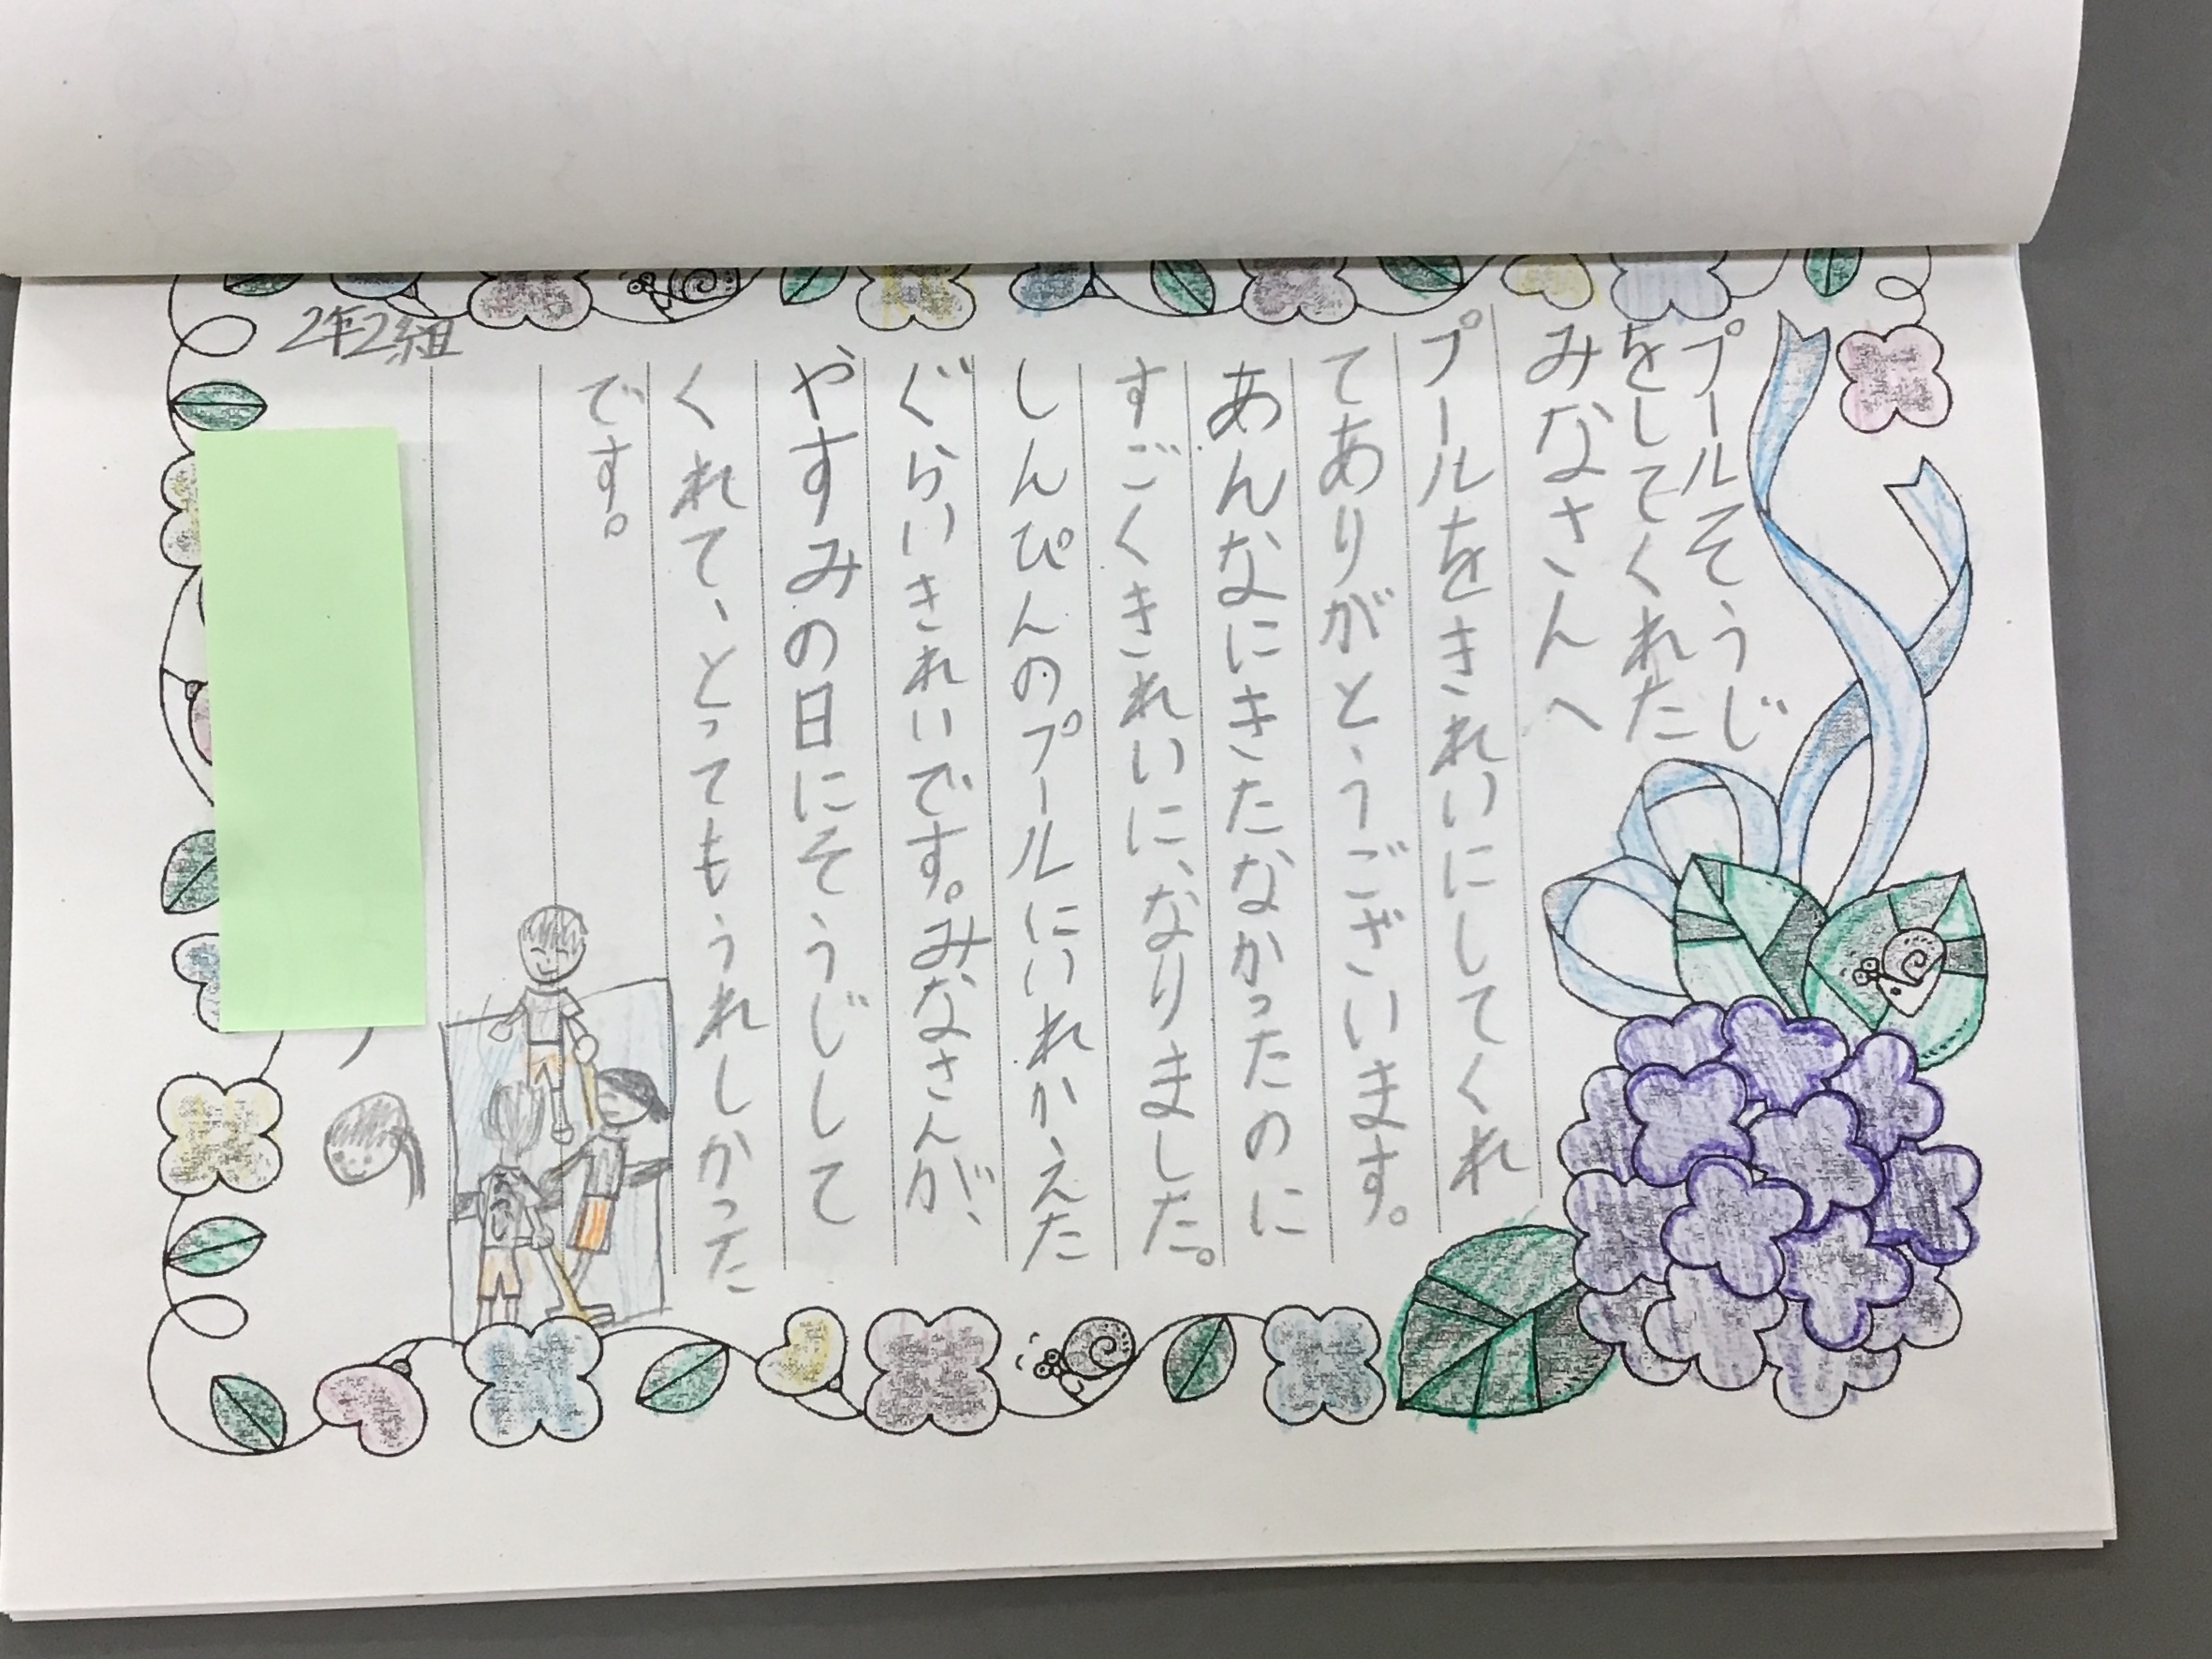 プールそうじ
をしてくれた
みなさんへ
プールをきれいにしてくれ
てありがとうございます。
あんなにきたなかったのに
すごくきれいに、なりました。
しんぴんのプールにいれかえた
ぐらいきれいです。みなさんが、
やすみの日にそうじして
くれて、とってもうれしかった
です。
2年2組